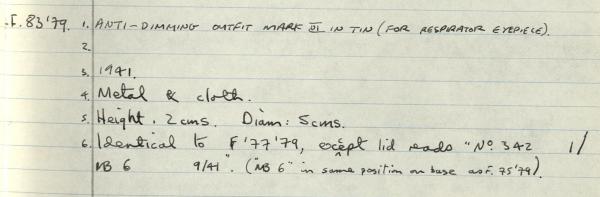 F. 83'79. 1. ANTI-DIMMING OUTFIT MARK VI IN TIN (FOR RESPIRATOR EYEPIECE).
2.
3. 1941.
4. Metal & cloth.
5. Height. 2cms. Diam: 5cms.
6. Identical to F'77'79, except lid reads "No. 342 1/
NB 6 9/41". ("NB 6" in same position on base as F. 75'79).